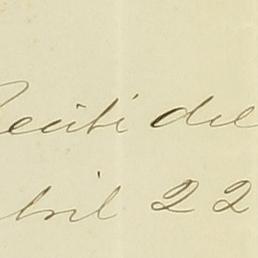 Recibí del
Abril 22